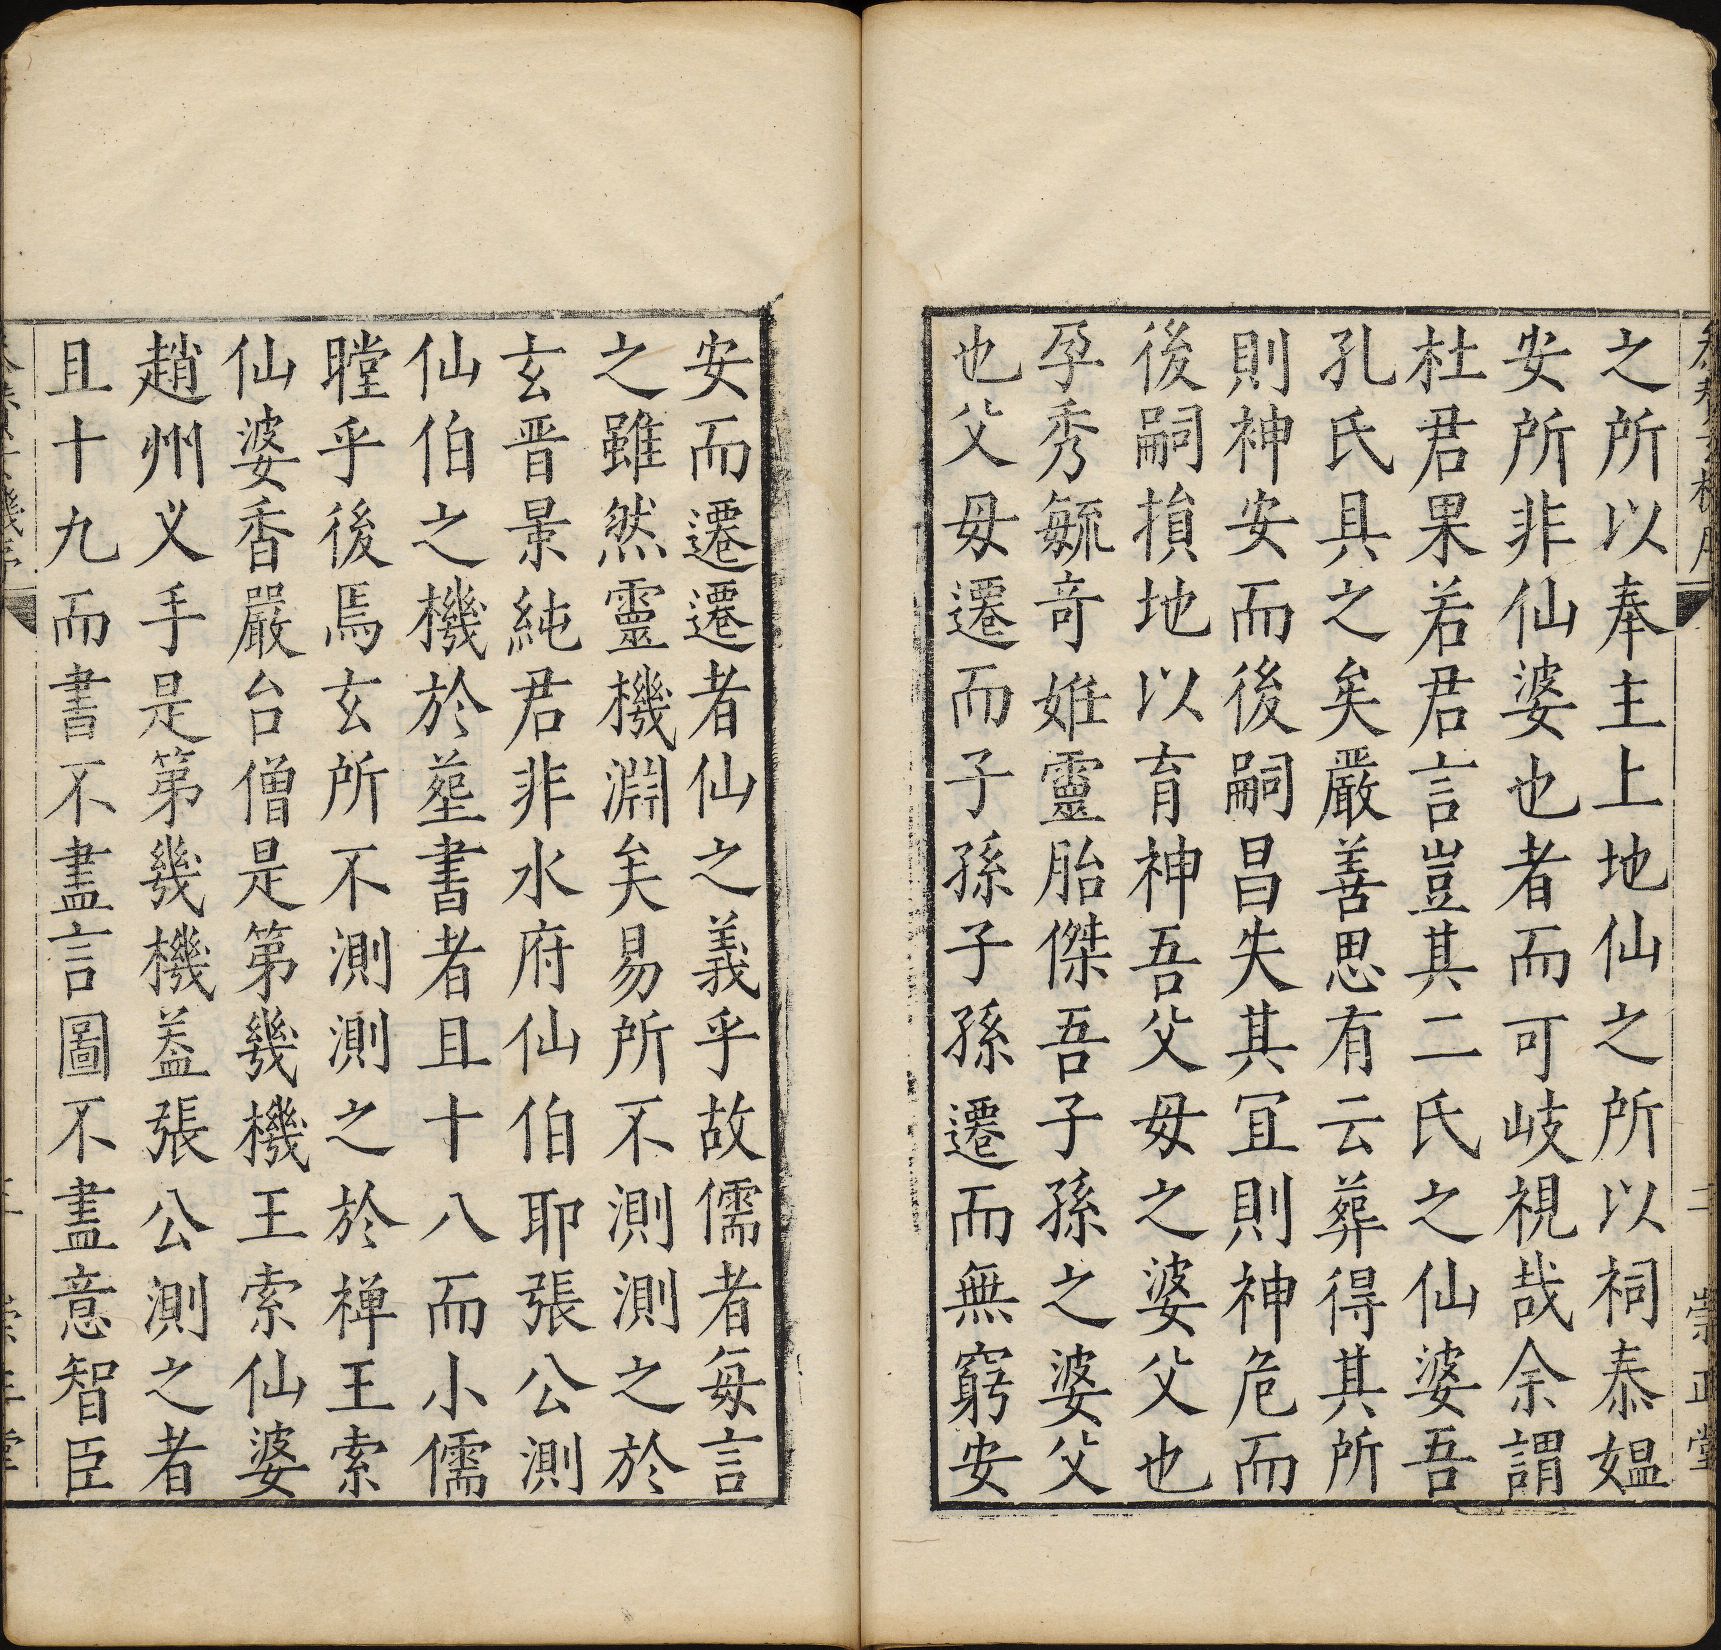 之所以奉主上地仙之所以祠泰媼
安所非仙婆也者而可岐視哉余謂
杜君果若君言豈其二氏之仙婆吾
孔氏具之矣嚴善思有云葬得其所
則神安而後嗣昌失其冝則神危而
後嗣損地以育神吾父毋之婆父也
孕秀毓竒娠靈胎傑吾子孫之婆父
也父毋遷而子孫子孫遷而無窮安
安而遷遷者仙之義乎故儒者每言
之雖然靈機淵矣易所不測測之於
玄晋景純君非水府仙伯耶張公測
仙伯之機於塟書者且十八而小儒
瞠乎後焉玄所不測測之於禅王索
仙婆香嚴台僧是第幾機王索仙婆
趙州义手是第幾機葢張公測之者
且十九而書不盡言圖不盡意智臣